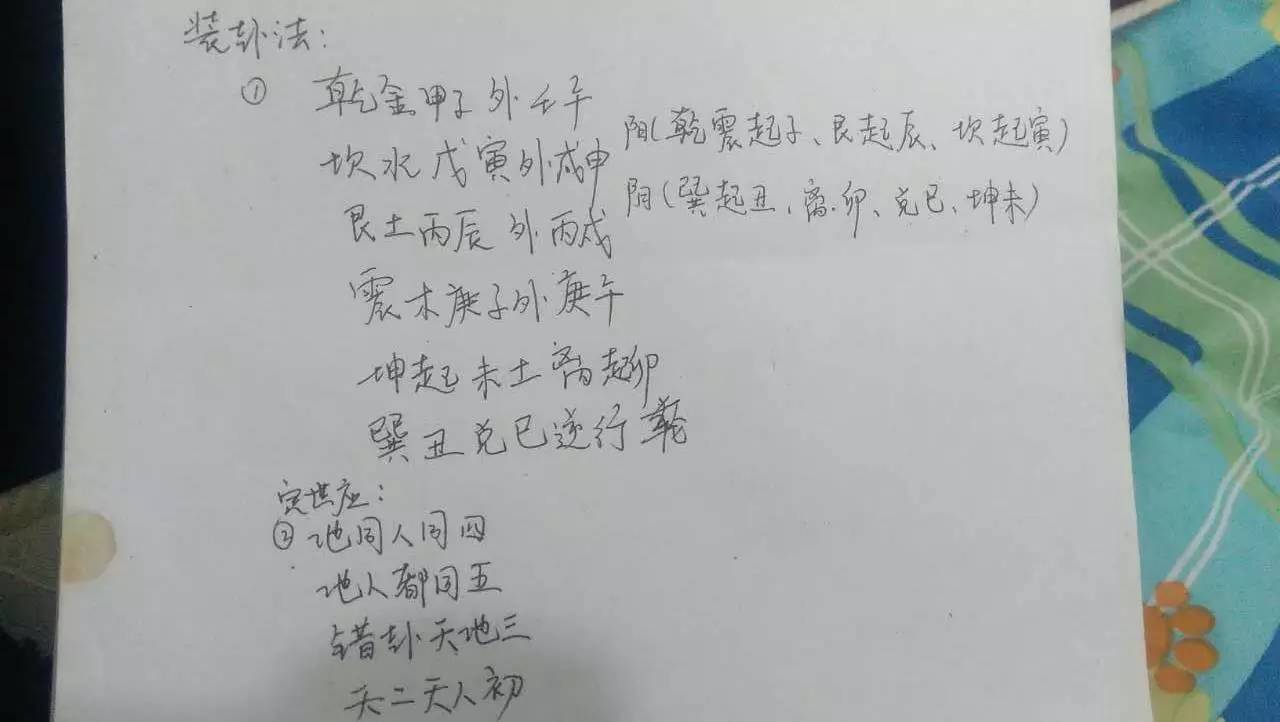 装卦法：
① 乾金甲子外壬午
坎水戊寅外戊申
阳（乾震起子、艮起辰、坎起寅）
艮土丙辰外丙戌
阴（巽起丑、离.卯、兑巳、坤未）
震木庚子外庚午
坤起未土离起卯
巽丑兑巳逆行轮
定世应：
② 地同人同四
地人都同五
错卦天地三
天二天人初